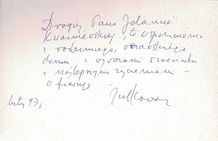 Drogiej Pani Jolancie
Kwaśniewskiej, te wspomnienia
z rodzinnego,
domu z wyrazami szacunku
i najlepszymi życzeniami –
luty 97 r.